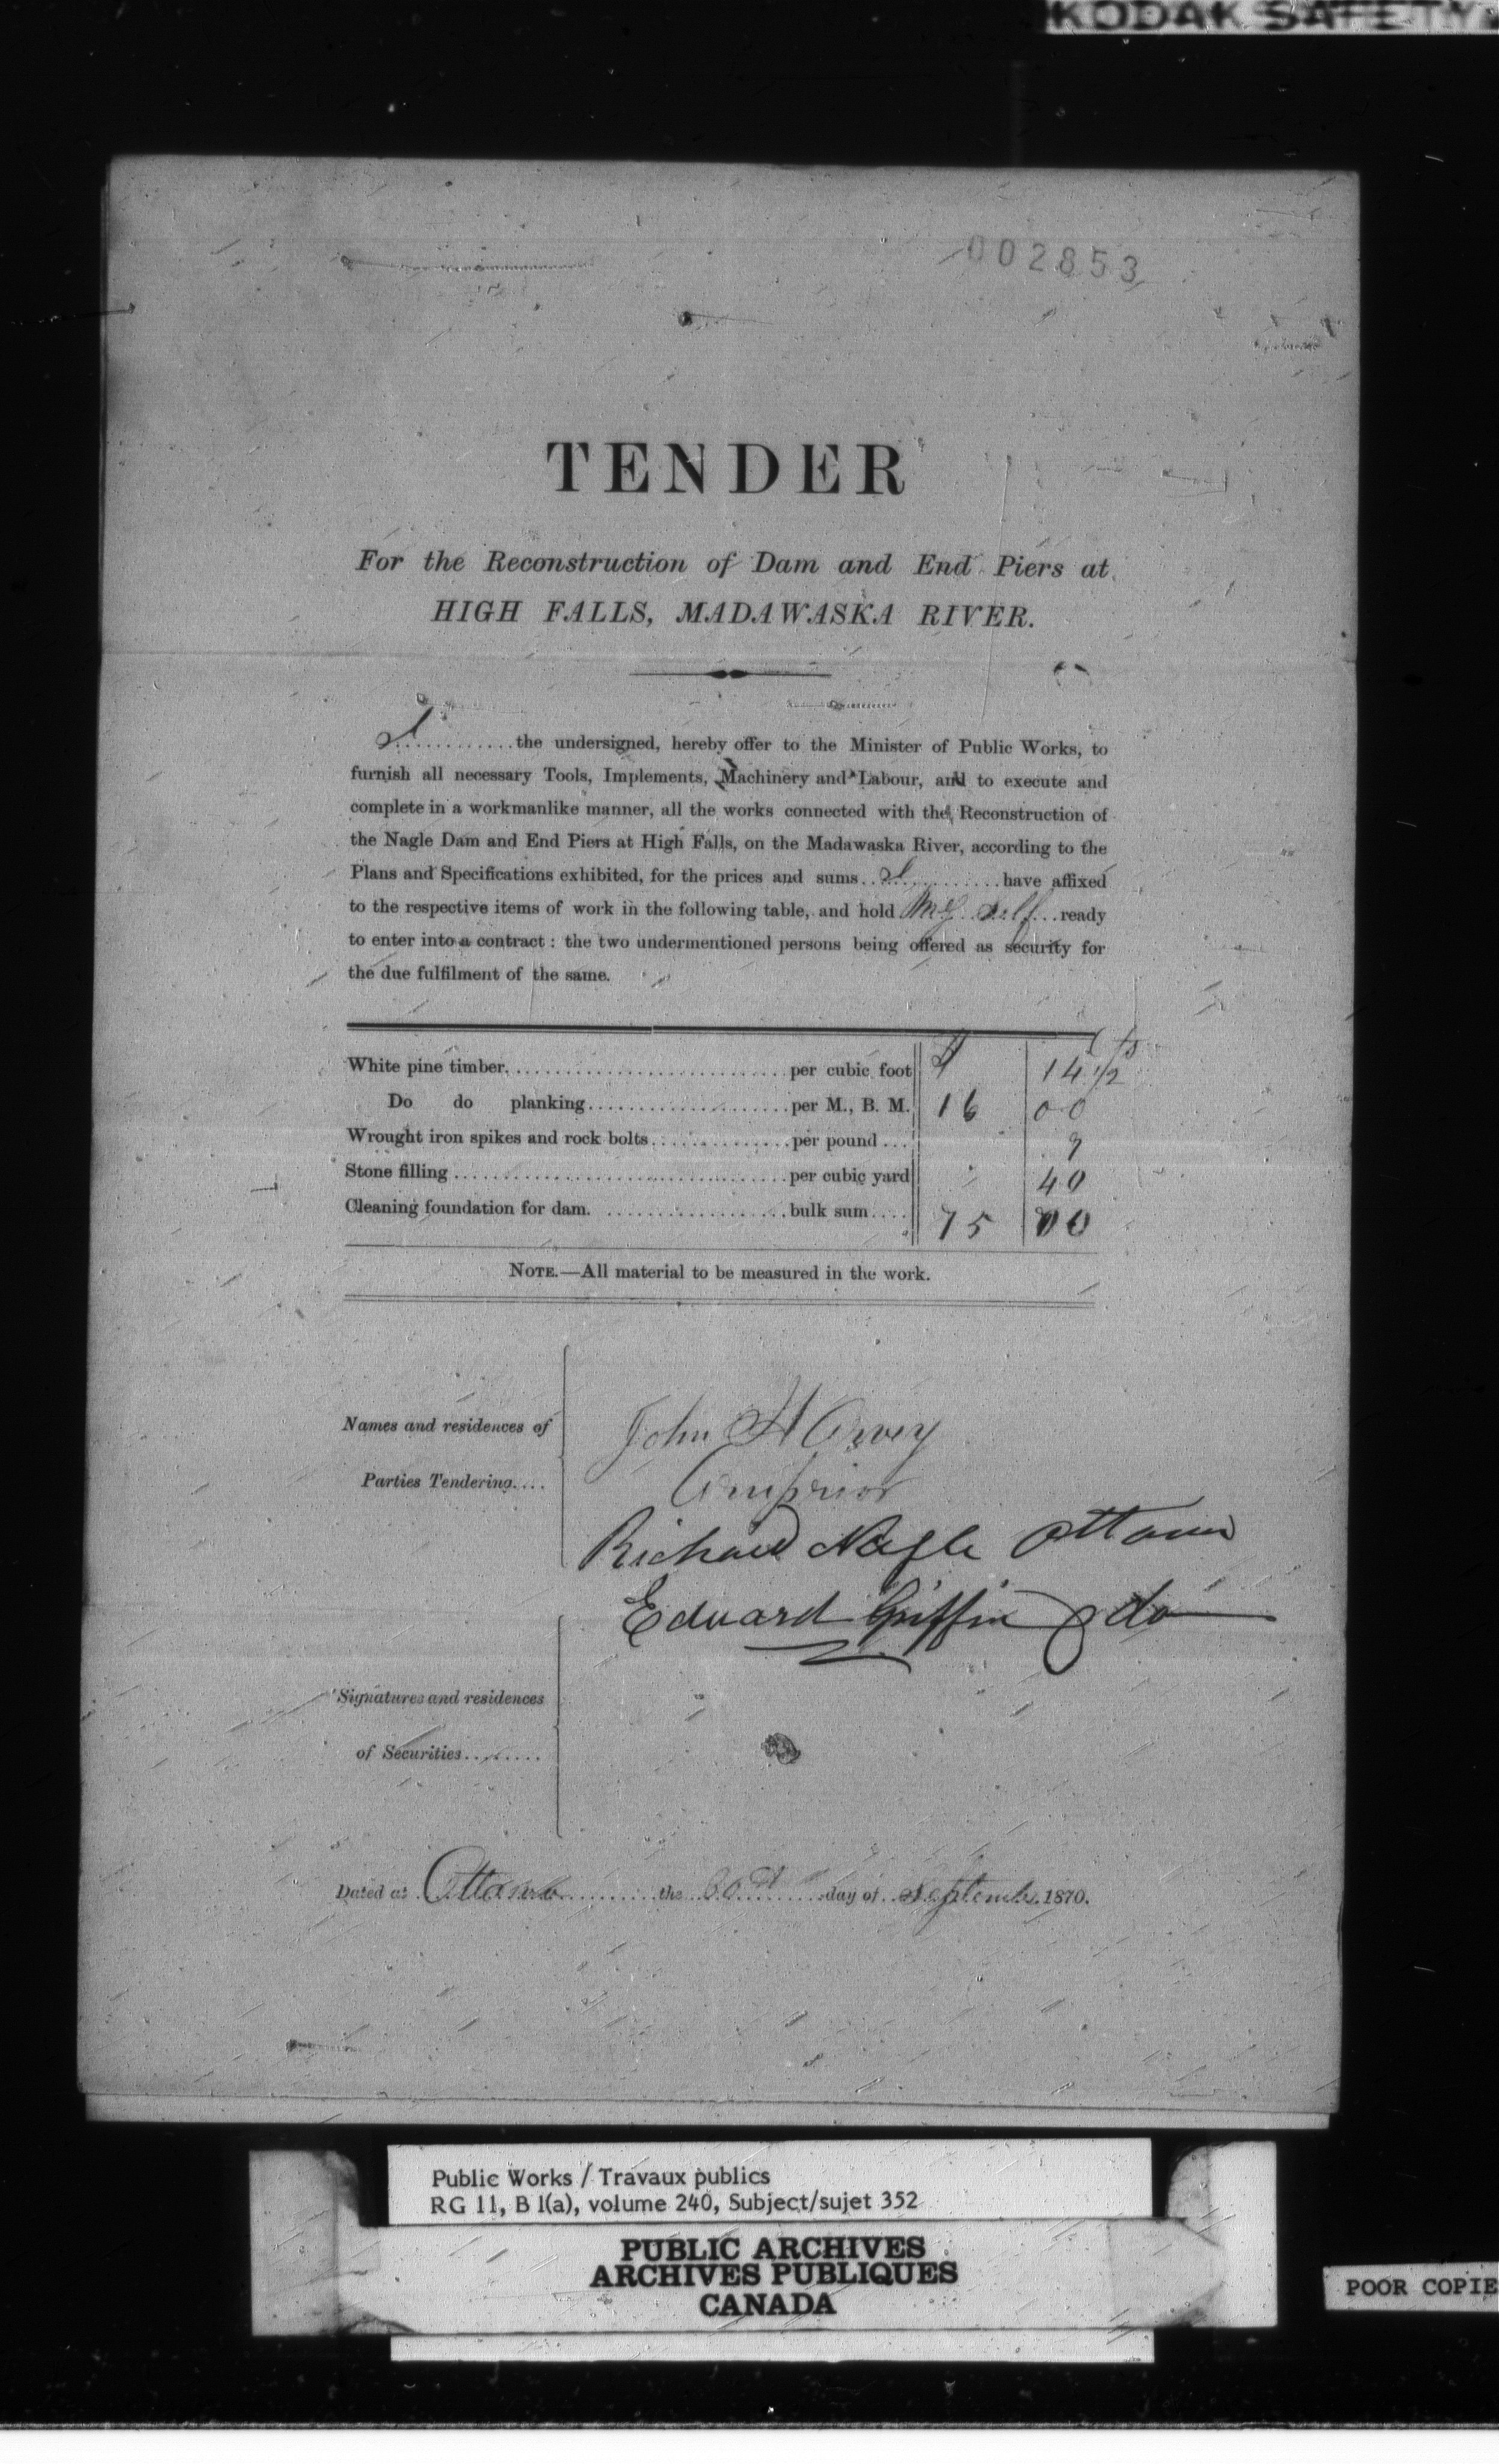 KODAK SAFETY
002853
TENDER
For the Reconstruction of Dam and End Piers at
HIGH FALLS, MADAWASKA RIVER.
I............the undersigned, hereby offer to the Minister of Public Works, to
furnish all necessary Tools, Implements, Machinery and Labour, and to execute and
complete in a workmanlike manner, all the works connected with the Reconstruction of
the Nagle Dam and End Piers at High Falls, on the Madawaska River, according to the
Plans and Specifications exhibited, for the prices and sums..I............have affixed
to the respective items of work in the following table, and hold My self...ready
to enter into a contract : the two undermentioned persons being offered as security for
the due fulfilment of the same.
$ cts
White pine timber..............................per cubic foot 14 1/2
Do do planking......................per M., B. M. 16 00
Wrought iron spikes and rock bolts...............per pound....
Stone filling....................................per cubic yard 40
Cleaning foundation for dam. ...................bulk sum.... 75 00
NOTE.—All material to be measured in the work.
Names and residences of
Parties Tendering....
John Harvey
Arnprior
Richard Nagle Ottawa
Edward Griffin do
Signatures and residences
of Securities........
Dated at Ottawa...........the.............day of..September.1870.
Public Works / Travaux publics
RG 11, B 1(a), volume 240, Subject/sujet 352
PUBLIC ARCHIVES
ARCHIVES PUBLIQUES
CANADA
POOR COPIE